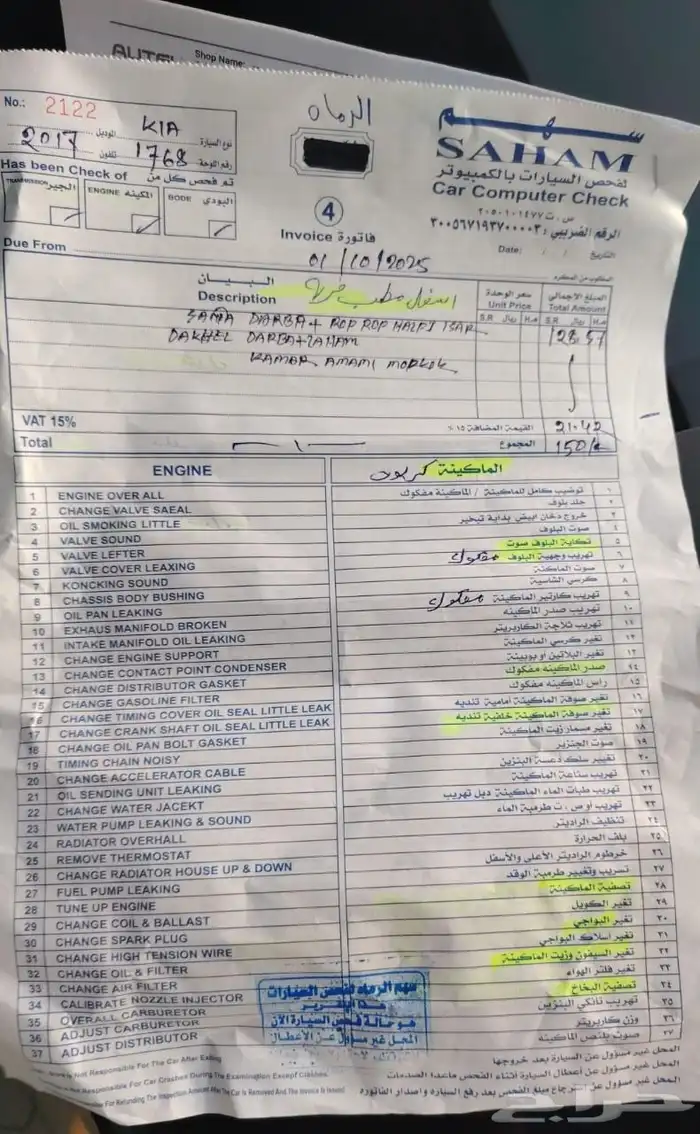 AUTEL
Shop Name:
No.: 2122
الرماه
سهم
SAHAM
لفحص السيارات بالكمبيوتر
Car Computer Check
س . ت ٢٠٥٠١٠١٤٧٧
الرقم الضريبي: ٣٠٠٥٦٧١٩٣٧٠٠٠٠٣
KIA نوع السيارة
2017 الموديل
1768 رقم اللوحة
تلفون
Has been Check of تم فحص كل من
TRANSMISSION الجير
ENGINE المكينة
BODE البودي
4
Invoice فاتورة
Date: / / التاريخ
Due From
المطلوب من المكرم
01/10/2025
البيان
Description
سعر الوحدة
Unit Price
المبلغ الإجمالي
Total Amount
S.R ريال H.هـ S.R ريال H.هـ
اسفل مطب ضربة
DARBA + ROP ROP
128.57
DAKHEL DARBA+LAHAM
KAMAR AMAMI MOPKOK
VAT 15% القيمة المضافة ١٥٪ 21.42
Total المجموع 150/-
ENGINE الماكينة
1 ENGINE OVER ALL توضيب كامل للماكينة / الماكينة مفكوك ١
2 CHANGE VALVE SAEAL جلد بلوف ٢
3 OIL SMOKING LITTLE خروج دخان ابيض بداية تبخير ٣
4 VALVE SOUND صوت البلوف ٤
5 VALVE LEFTER تكاية البلوف صوت ٥
6 VALVE COVER LEAXING تهريب وجهية البلوف مفكوك ٦
7 KONCKING SOUND صوت الماكنة ٧
8 CHASSIS BODY BUSHING كرسي الشاسية ٨
9 OIL PAN LEAKING تهريب كارتير الماكينة مفكوك ٩
10 EXHAUS MANIFOLD BROKEN تهريب صدر الماكينه ١٠
11 INTAKE MANIFOLD OIL LEAKING تهريب ثلاجة الكاربريتر ١١
12 CHANGE ENGINE SUPPORT تغير كرسي الماكينة ١٢
13 CHANGE CONTACT POINT CONDENSER تغير البلاتين او بوبينة ١٣
14 CHANGE DISTRIBUTOR GASKET صدر الماكينه مفكوك ١٤
15 CHANGE GASOLINE FILTER راس الماكينه مفكوك ١٥
16 CHANGE TIMING COVER OIL SEAL LITTLE LEAK تغير صوفة الماكينة امامية تنديه ١٦
17 CHANGE CRANK SHAFT OIL SEAL LITTLE LEAK تغير صوفة الماكينة خلفية تنديه ١٧
18 CHANGE OIL PAN BOLT GASKET تغير مسمار زيت الماكينة ١٨
19 TIMING CHAIN NOISY صوت الجنزير ١٩
20 CHANGE ACCELERATOR CABLE تغيير سلك دعسة البنزين ٢٠
21 OIL SENDING UNIT LEAKING تهريب ساعة الماكينة ٢١
22 CHANGE WATER JACEKT تهريب طبات الماء الماكينة دبل تهريب ٢٢
23 WATER PUMP LEAKING & SOUND تهريب أو ص . ت طرمبة الماء ٢٣
24 RADIATOR OVERHALL تنظيف الراديتر ٢٤
25 REMOVE THERMOSTAT بلف الحرارة ٢٥
26 CHANGE RADIATOR HOUSE UP & DOWN خرطوم الراديتر الأعلى والأسفل ٢٦
27 FUEL PUMP LEAKING تسريب وتغيير طرمبة الوقد ٢٧
28 TUNE UP ENGINE تصفية الماكينة ٢٨
29 CHANGE COIL & BALLAST تغير الكويل ٢٩
30 CHANGE SPARK PLUG تغير البواجي ٣٠
31 CHANGE HIGH TENSION WIRE تغير اسلاك البواجي ٣١
32 CHANGE OIL & FILTER تغير السيفون وزيت الماكينة ٣٢
33 CHANGE AIR FILTER تغير فلتر الهواء ٣٣
34 CALIBRATE NOZZLE INJECTOR تصفية البخاخ ٣٤
35 OVERALL CARBURETOR تهريب تانكي البنزين ٣٥
36 ADJUST CARBURETOR وزن كاربريتر ٣٦
37 ADJUST DISTRIBUTOR صوت بلنص الماكينه ٣٧
سهم الرماه لفحص السيارات
هذا التقرير
هو حالة فحص السيارة الآن
المحل غير مسؤول عن الأعطال
المحل غير مسؤول عن السيارة بعد خروجها
المحل غير مسؤول عن أعطال السيارة أثناء الفحص ماعدا الصدمات
المحل غير مسؤول عن استرجاع مبلغ الفحص بعد رفع السيارة واصدار الفاتورة
is Not Responsible For The Car After Exiting
Not Responsible For Car Crashes During The Examination Except Crashes
For Refunding The Inspection Amount After The Car Is Removed And The Invoice Is Issued
حراج